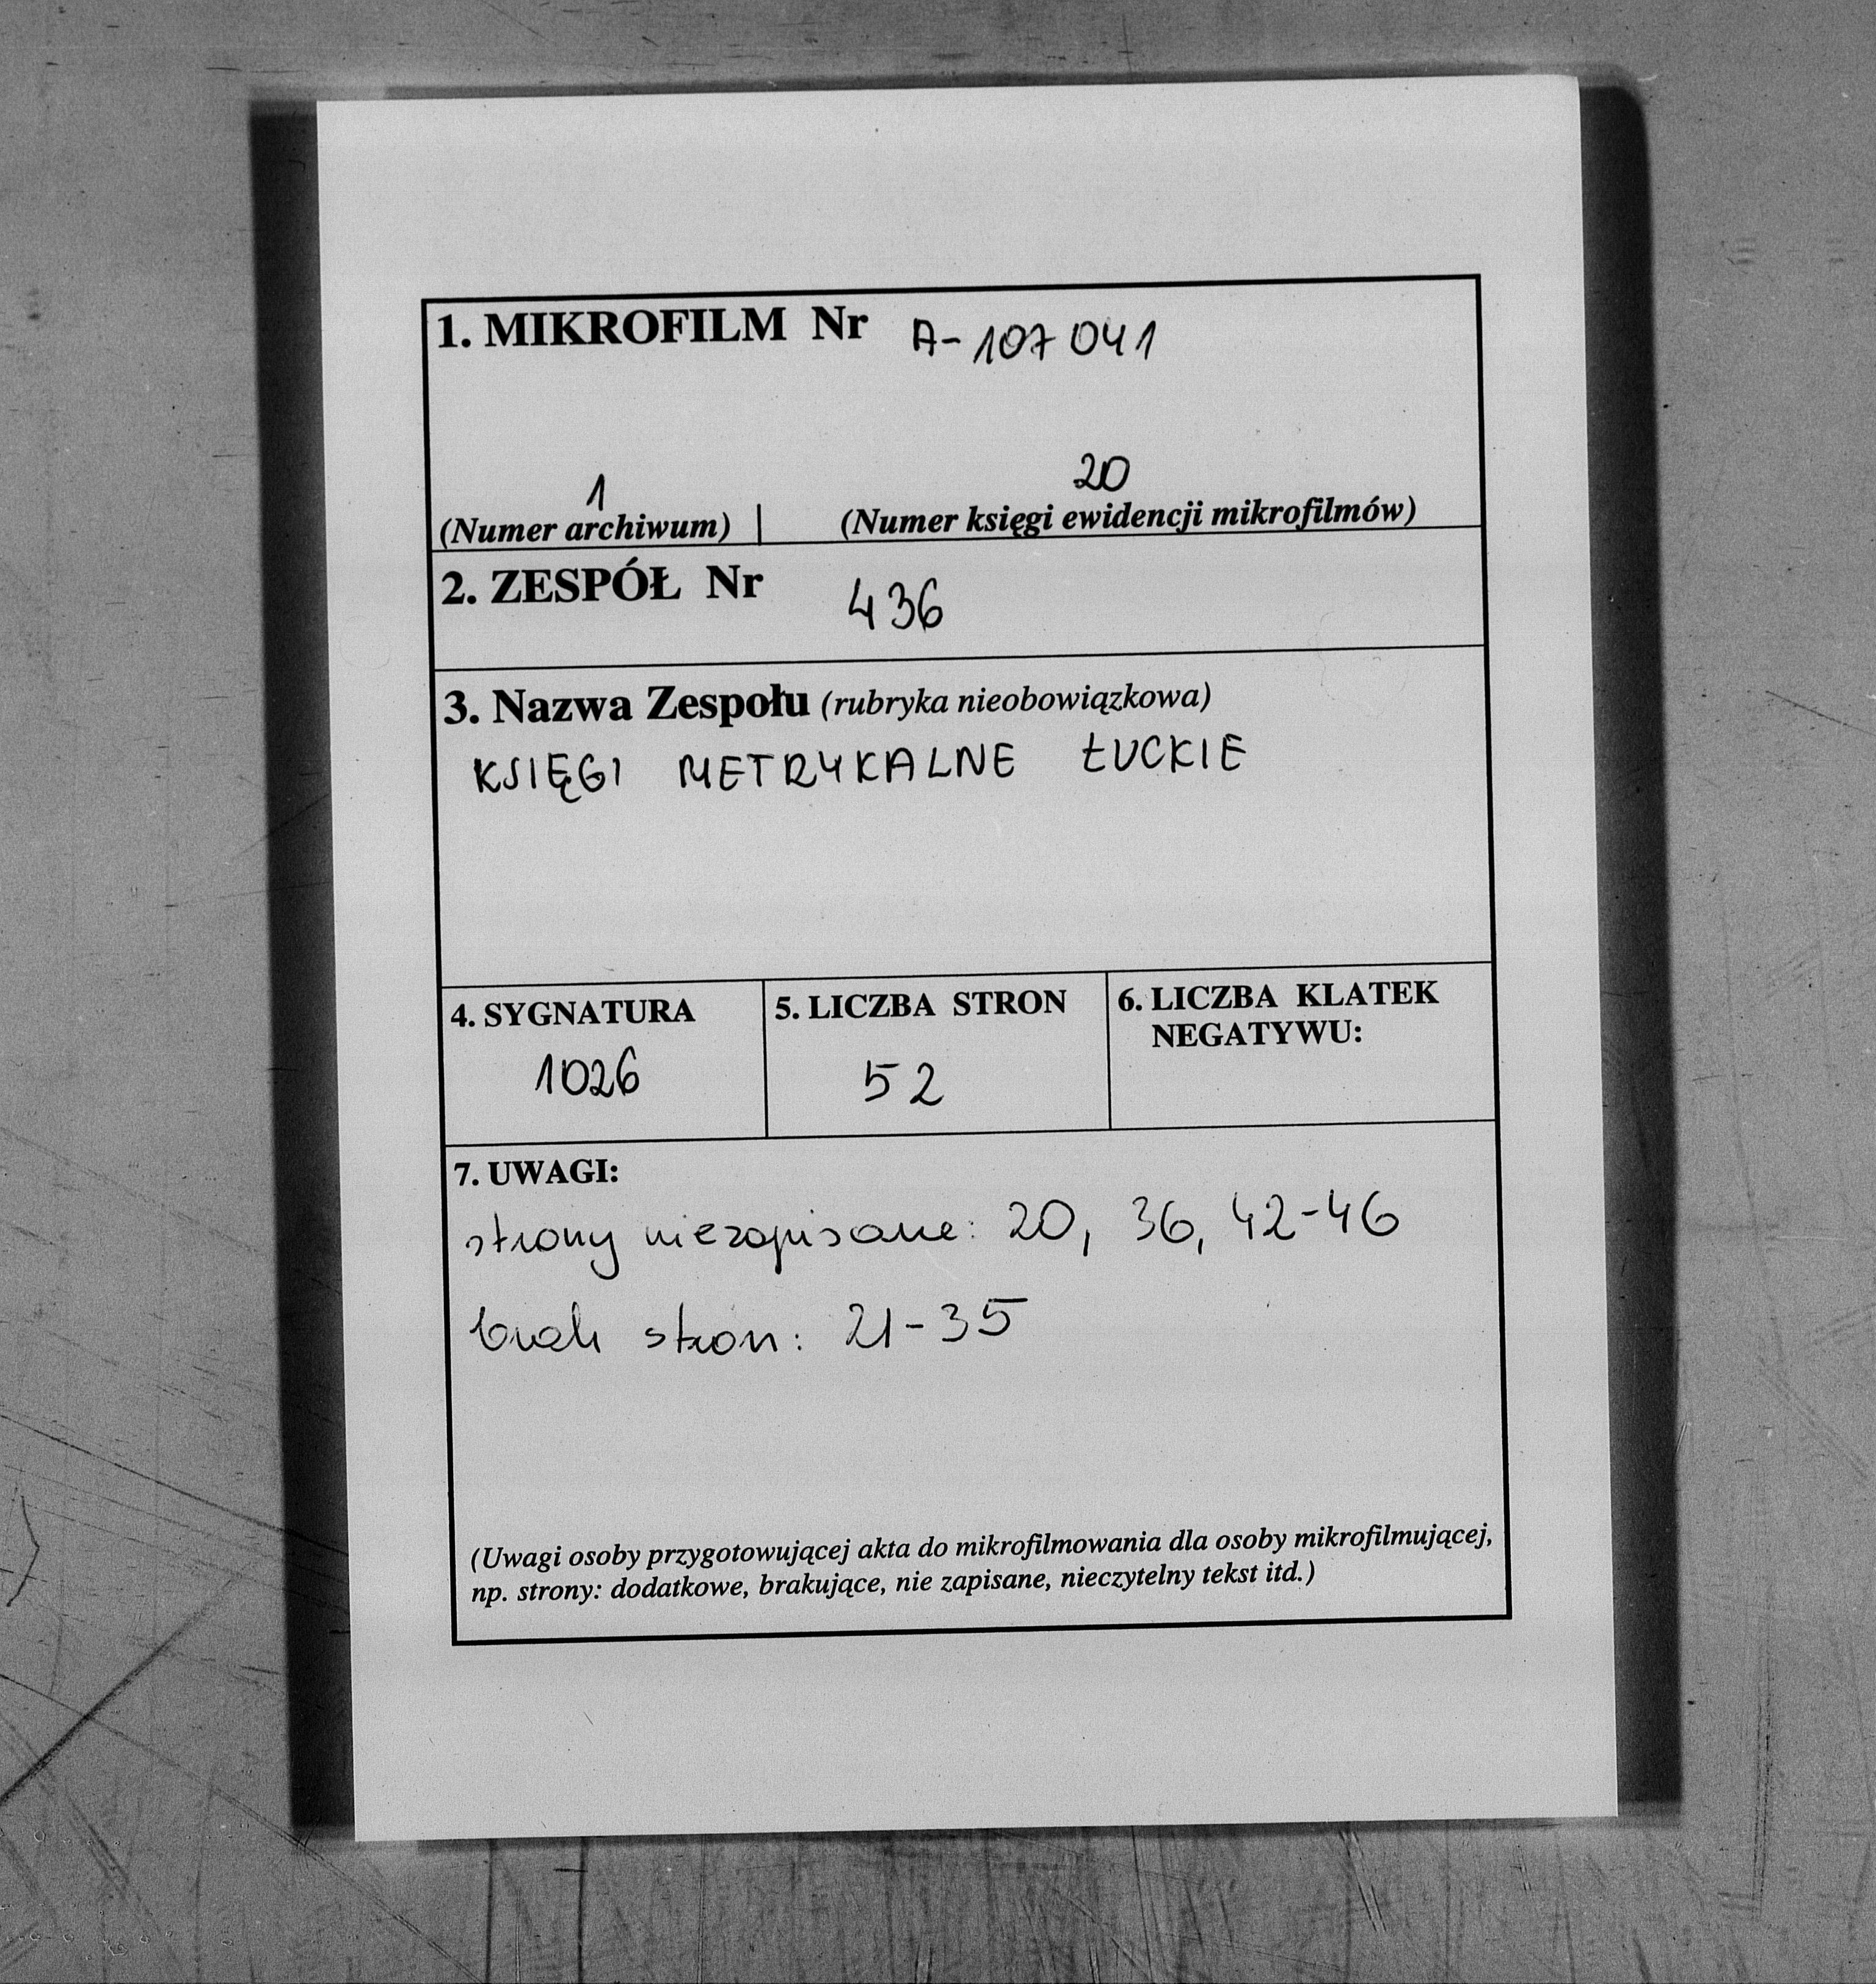 1. MIKROFILM Nr A-107041
1 20
(Numer archiwum) | (Numer księgi ewidencji mikrofilmów)
2. ZESPÓŁ Nr 436
3. Nazwa Zespołu (rubryka nieobowiązkowa)
KSIĘGI METRYKALNE ŁUCKIE
4. SYGNATURA
1026
5. LICZBA STRON
52
6. LICZBA KLATEK
NEGATYWU:
7. UWAGI:
strony niezapisane: 20, 36, 42-46
brak stron: 21-35
(Uwagi osoby przygotowującej akta do mikrofilmowania dla osoby mikrofilmującej,
np. strony: dodatkowe, brakujące, nie zapisane, nieczytelny tekst itd.)